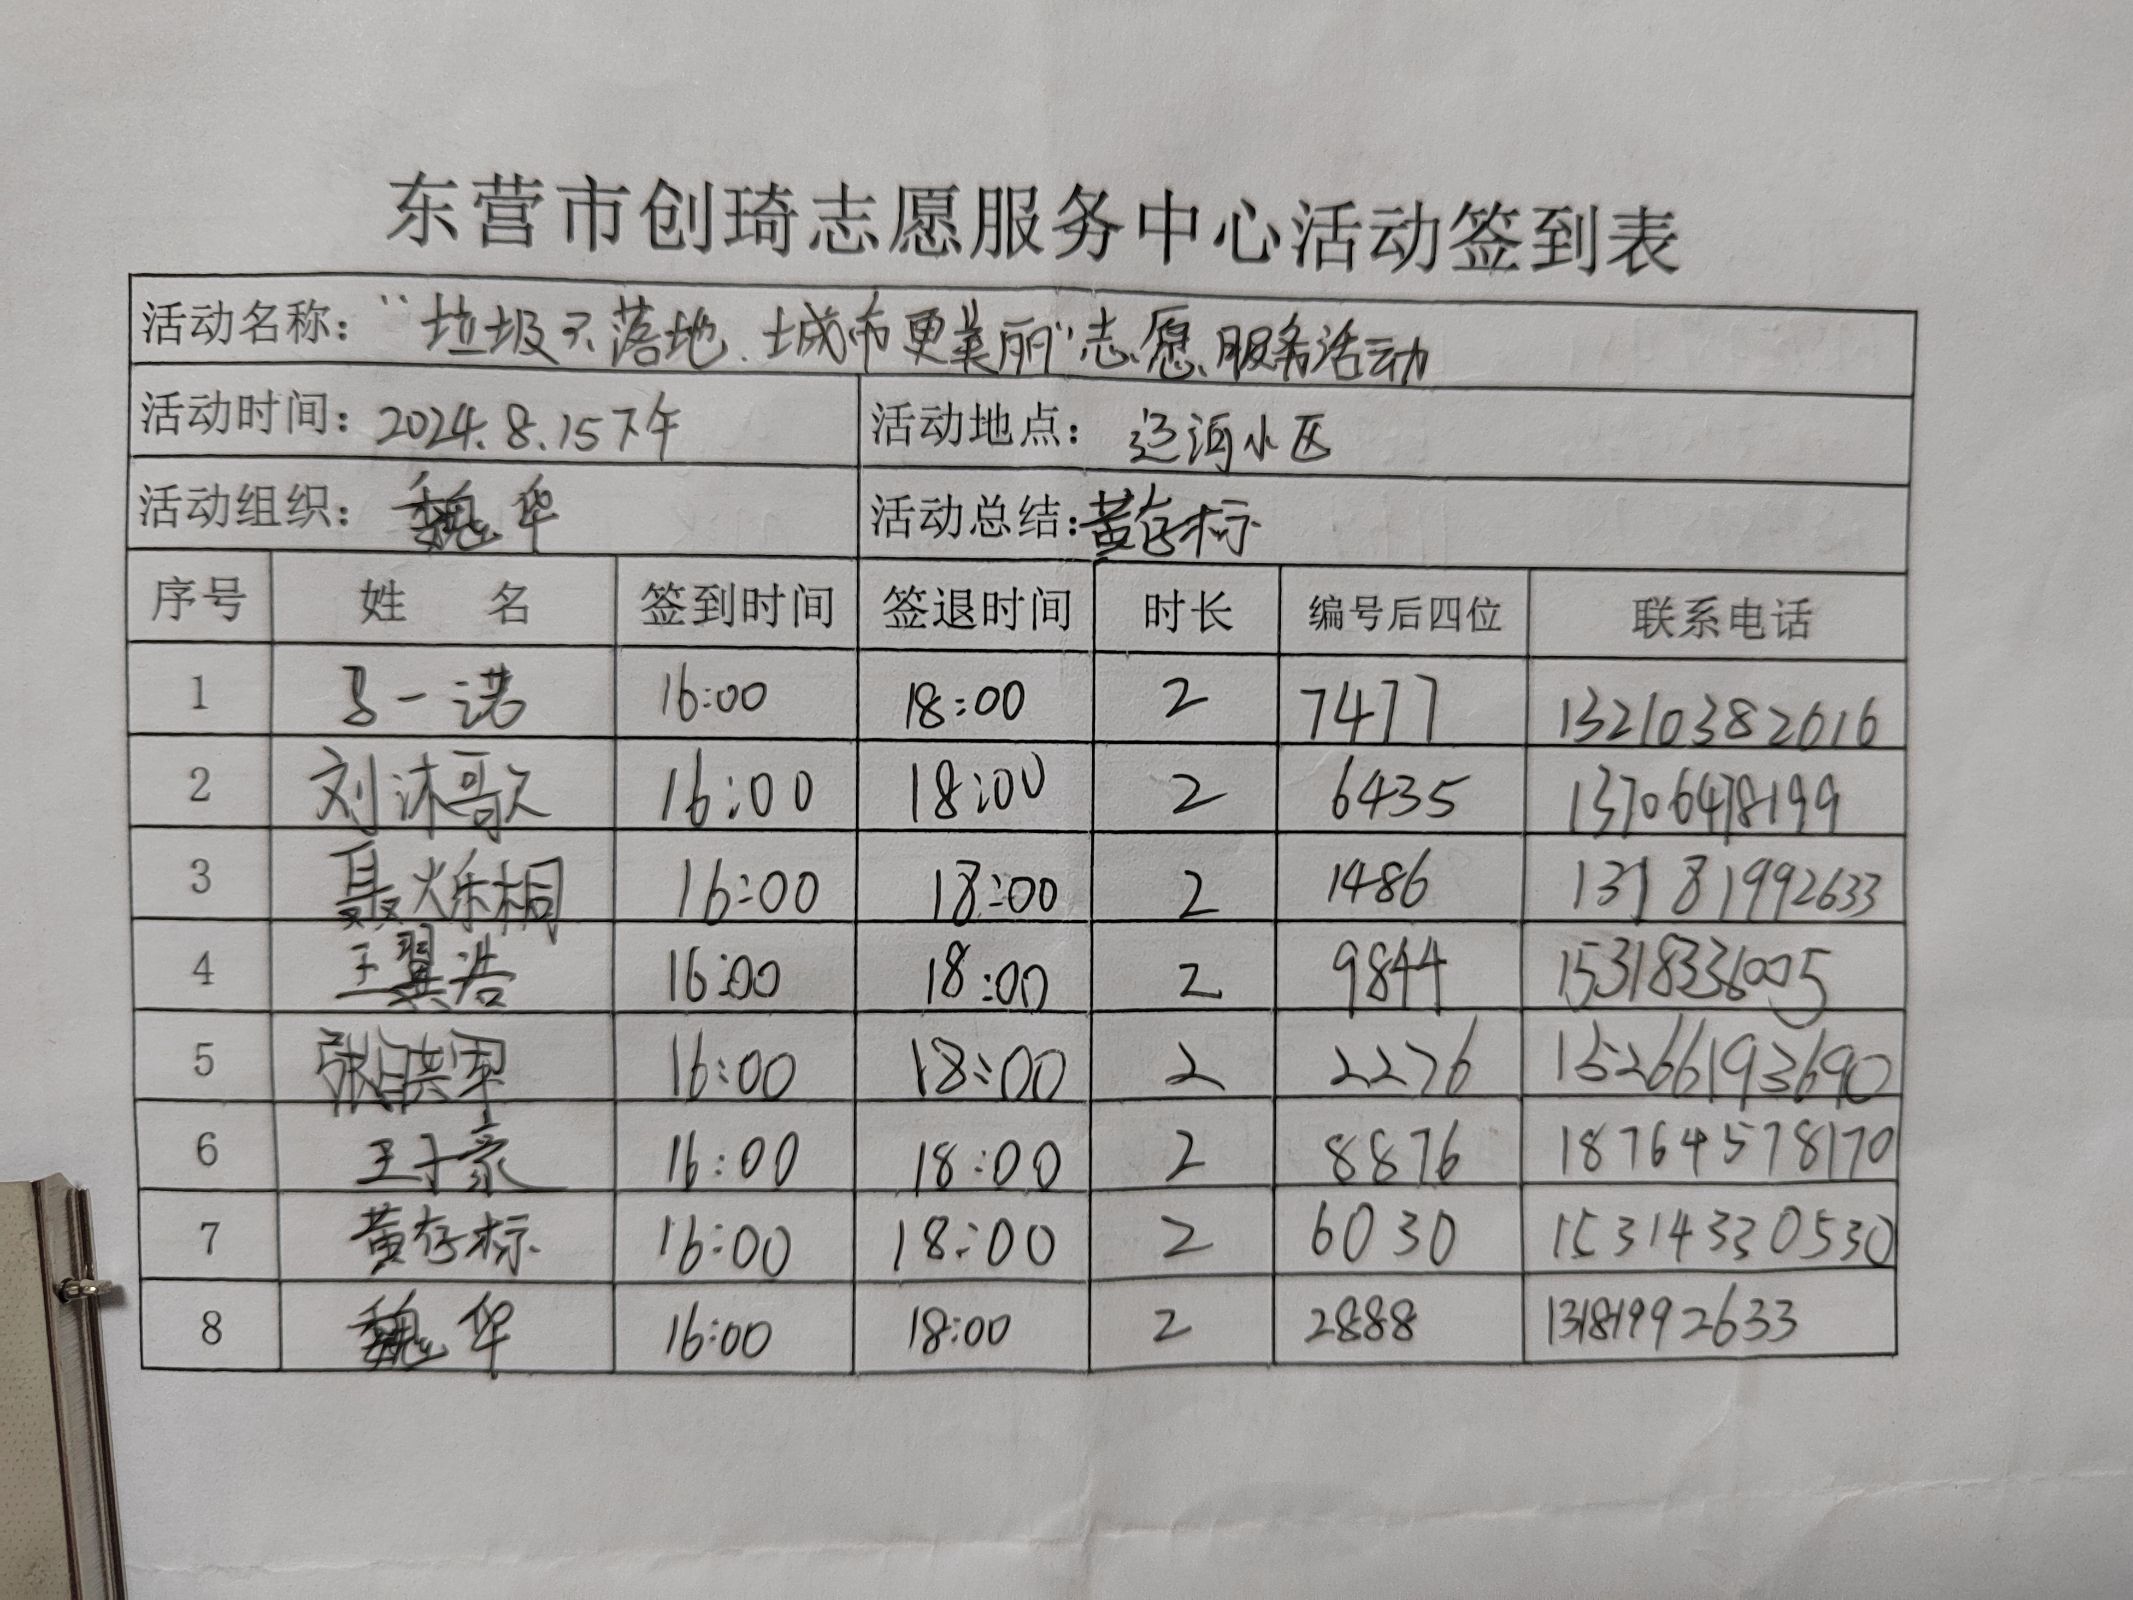 东营市创琦志愿服务中心活动签到表
活动名称：“垃圾不落地、城市更美丽”志愿服务活动
活动时间：2024.8.15下午 活动地点： 小区
活动组织：魏华 活动总结：黄存标
序号 姓名 签到时间 签退时间 时长 编号后四位 联系电话
1 马一诺 16:00 18:00 2 7477 13210382616
2 刘沐歌 16:00 18:00 2 6435 13706478199
3 聂烁桐 16:00 18:00 2 1486 13181992633
4 王翼浩 16:00 18:00 2 9844 15318336005
5 16:00 18:00 2 2276 15266193690
6 王子豪 16:00 18:00 2 8876 18764578170
7 黄存标 16:00 18:00 2 6030 15314330530
8 魏华 16:00 18:00 2 2888 13181992633